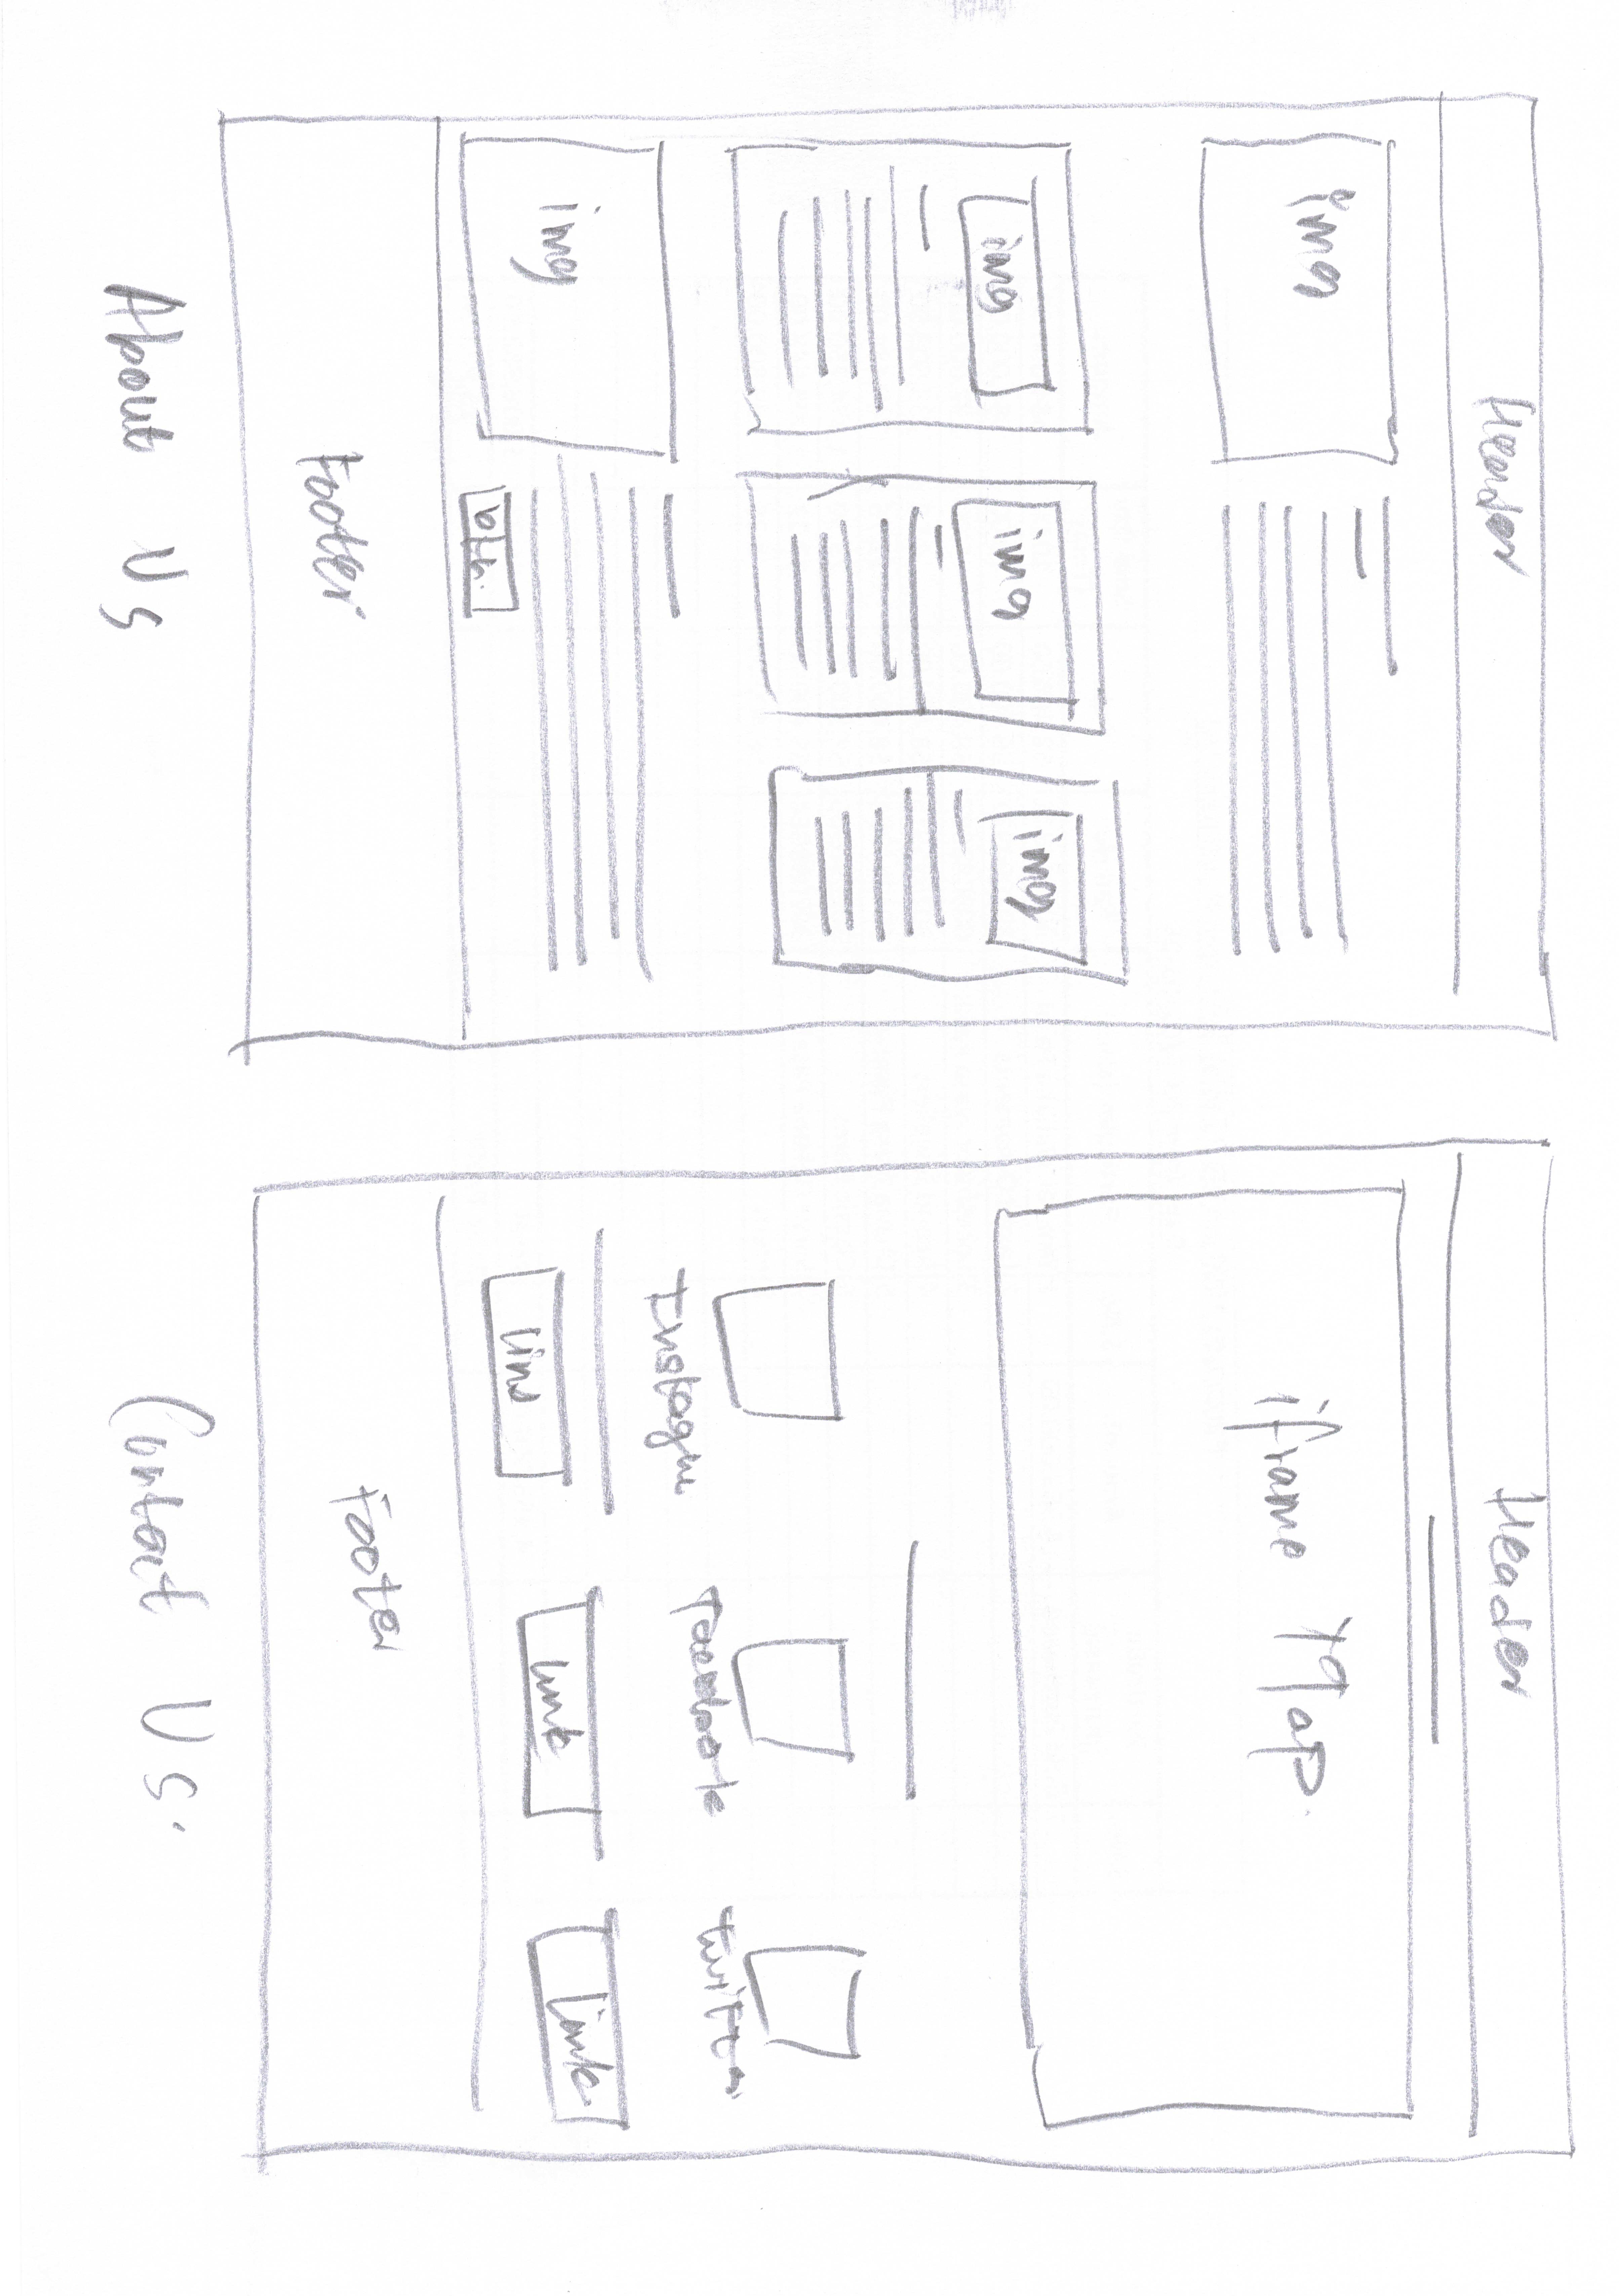 Header
img
img
img
img
img
btn.
Footer
About Us
Header
iframe Map.
Facebook
twitter
link
link
Footer
Contact Us.